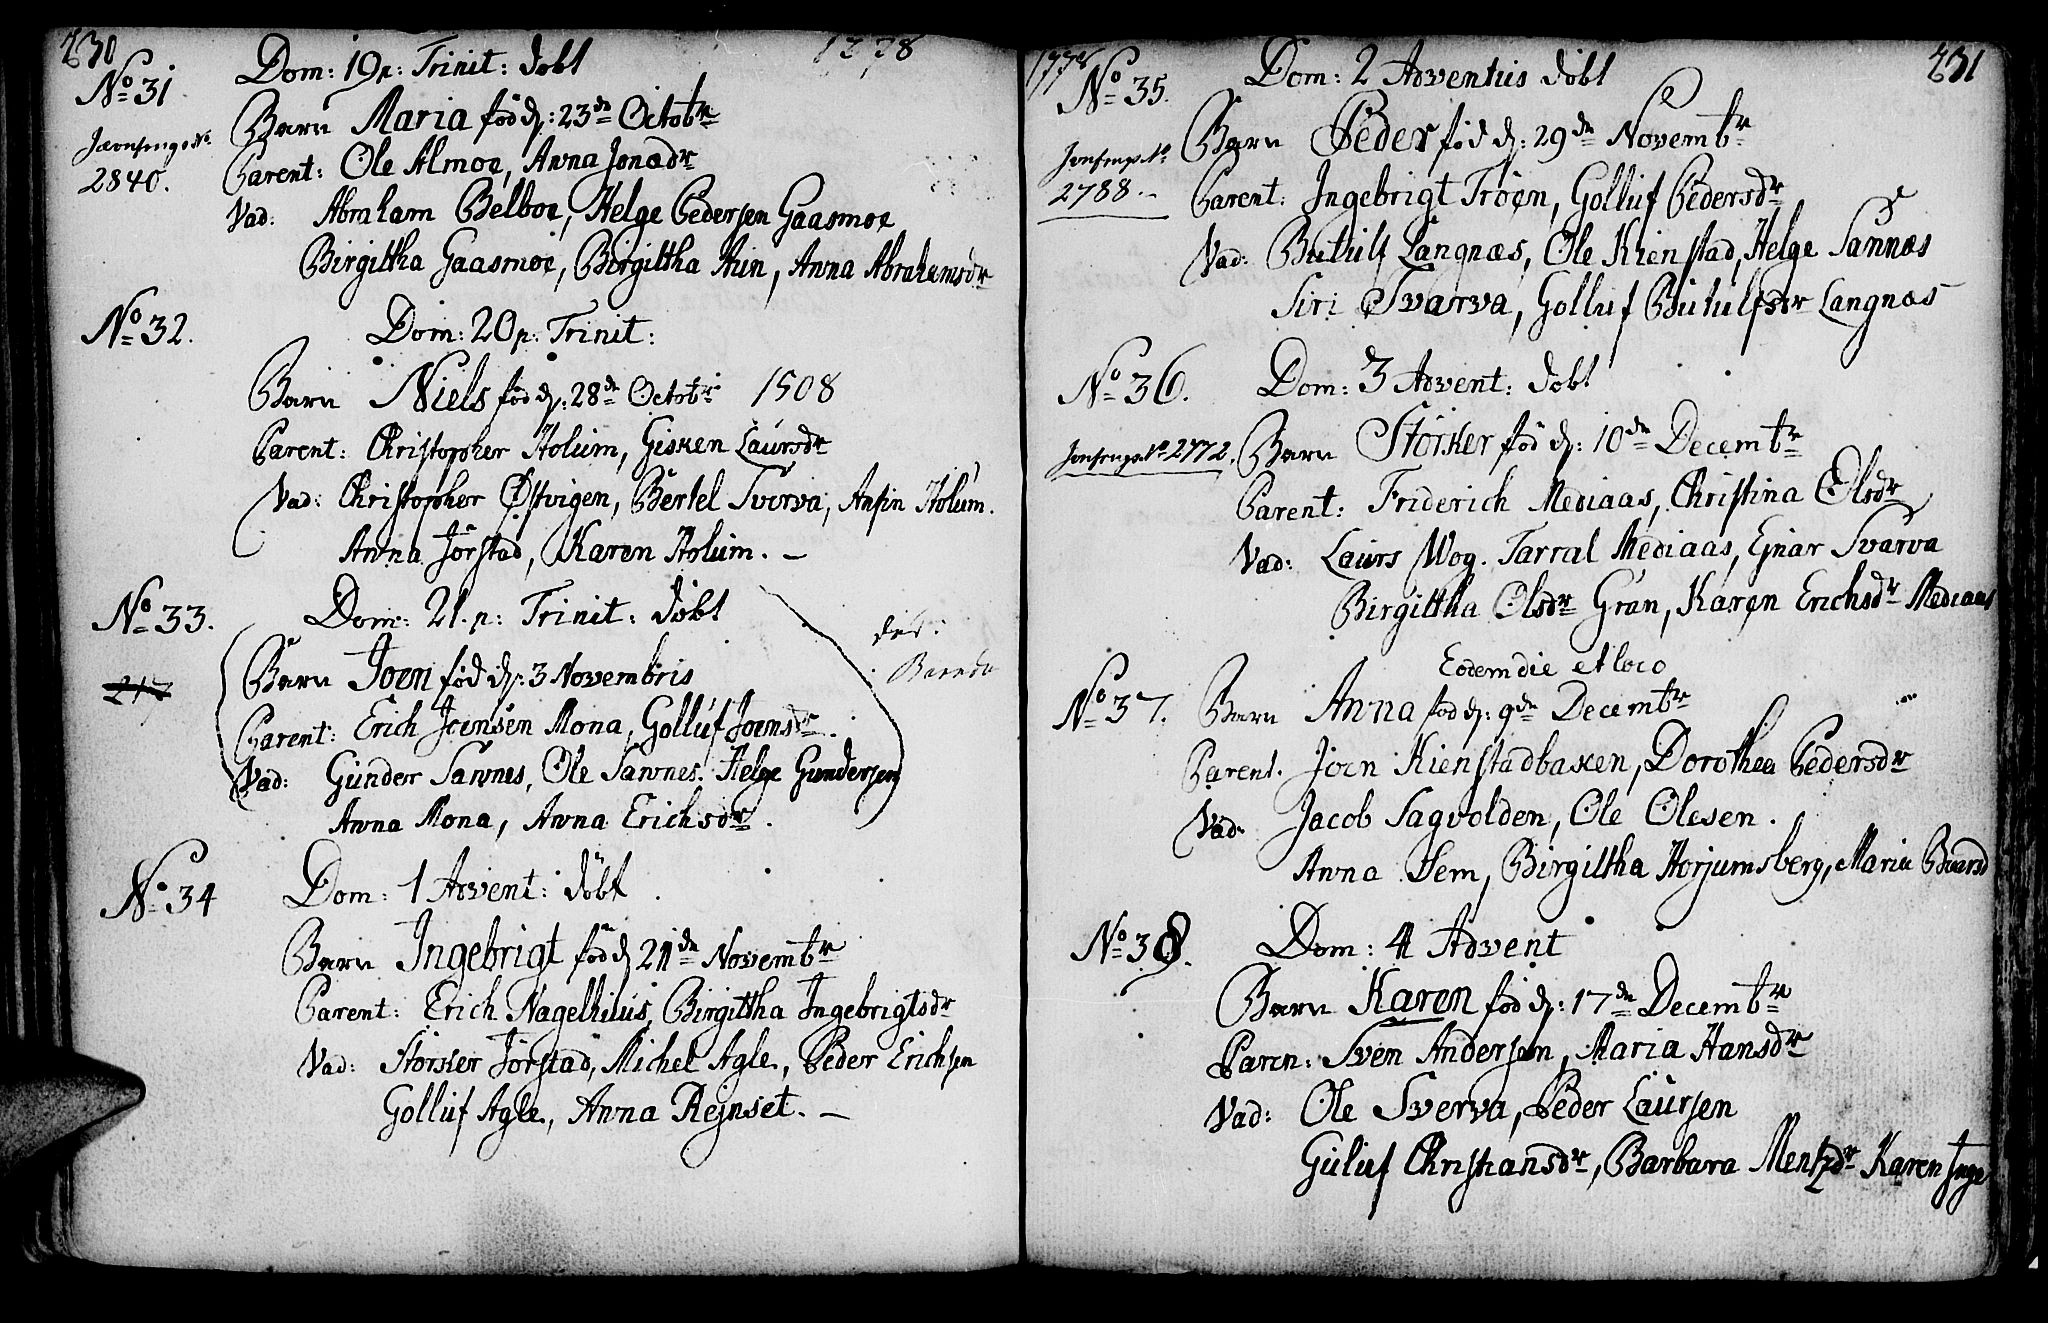 230
1778
No 31
Dom: 19 p: Trinit: döbt
Barn Maria fød d: 23de Octobr
2840.
Parent: Ole Almoe, Anna Jonædr
Vad: Abraham Belboe, Helge Pedersen Gaasmoe
Birgittha Gaasmoe, Birgittha Aun, Anna Abrahamsdr
No 32.
Dom: 20 p: Trinit:
Barn Niels fød d: 28de Octobr 1508
Parent: Christopher Holum, Gisken Laursdr
Vad: Christopher Østvigen, Bertel Svorva, Ansin Holum.
Anna Jørstad, Karen Holum. –
No 33.
Dom: 21. p: Trinit: døbt
Barn Joen fød d: 3 Novembris
217
Parent: Erich Joensen Mona, Golluf Joensdr.
Vad: Gunder Sannes, Ole Sannes. Helge Gundersen
Anna Mona, Anna Erichsdr.
No 34
Dom: 1 Advent: döbt.
Barn Ingebrigt fød d 21de Novembr
Parent: Erich Nagelhuus, Birgittha Ingebrigtsdr
Vad: Störker Jørstad, Michel Agle, Peder Erichsen
Golluf Agle, Anna Rejnset. –
1778
231
No 35.
Dom: 2 Adventus döbt
Barn Peder fød d: 29de Novembr
2788. –
Parent: Ingebrigt Trøen, Golluf Pedersdr
Vad: Butulf Langnæs, Ole Kienstad, Helge Sannæs
Siri Svarva, Golluf Butulfsdr Langnæs
No 36.
Dom: 3 Advent: döbt
2772.
Barn Störker fød d: 10de Decembr
Parent: Friderich Mediaas, Christina Olsdr
Vad: Laurs Wog. Tarral Mediaas, Ejnar Svarva
Birgittha Olsdr Gran, Karen Erichsdr Mediaas
Eodem die et loco
No 37.
Barn Anna fød d: 9de Decembr
Parent. Joen Kienstadbaken, Dorothea Pedersdr
Vad. Jacob Sagvolden, Ole Olesen.
Anna Sem, Birgittha Horjumsberg, Maria Baarsd
No 38.
Dom: 4 Advent
Barn Karen fød d: 17de Decembr
Paren: Sven Andersen, Maria Hansdr
Vad: Ole Sverva, Peder Laursen
Guluf Christiansdr, Barbara Mentzdr Karen Inge